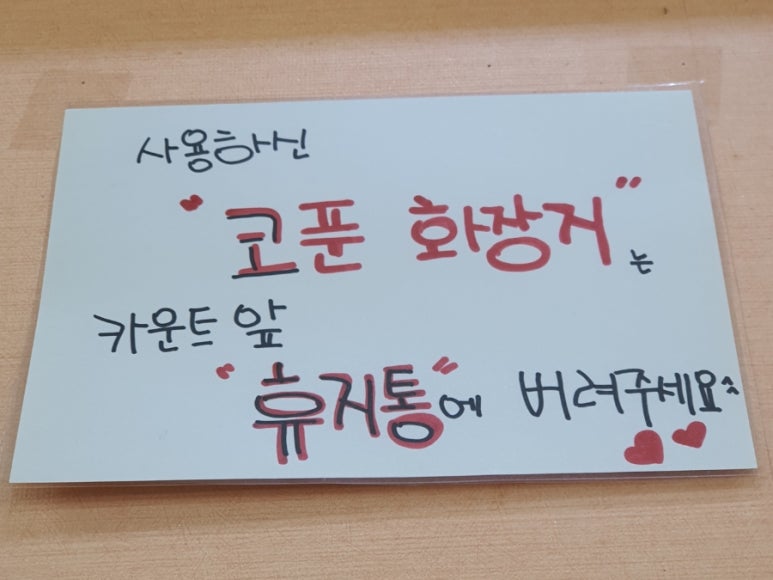 사용하신
"코푼 화장지"는
카운트 앞
"휴지통"에 버려주세요^^